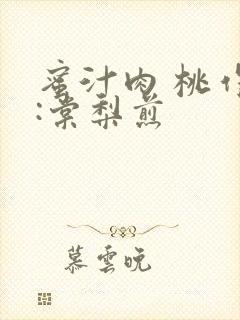 蜜汁肉桃作
:棠梨煎
慕雲晚